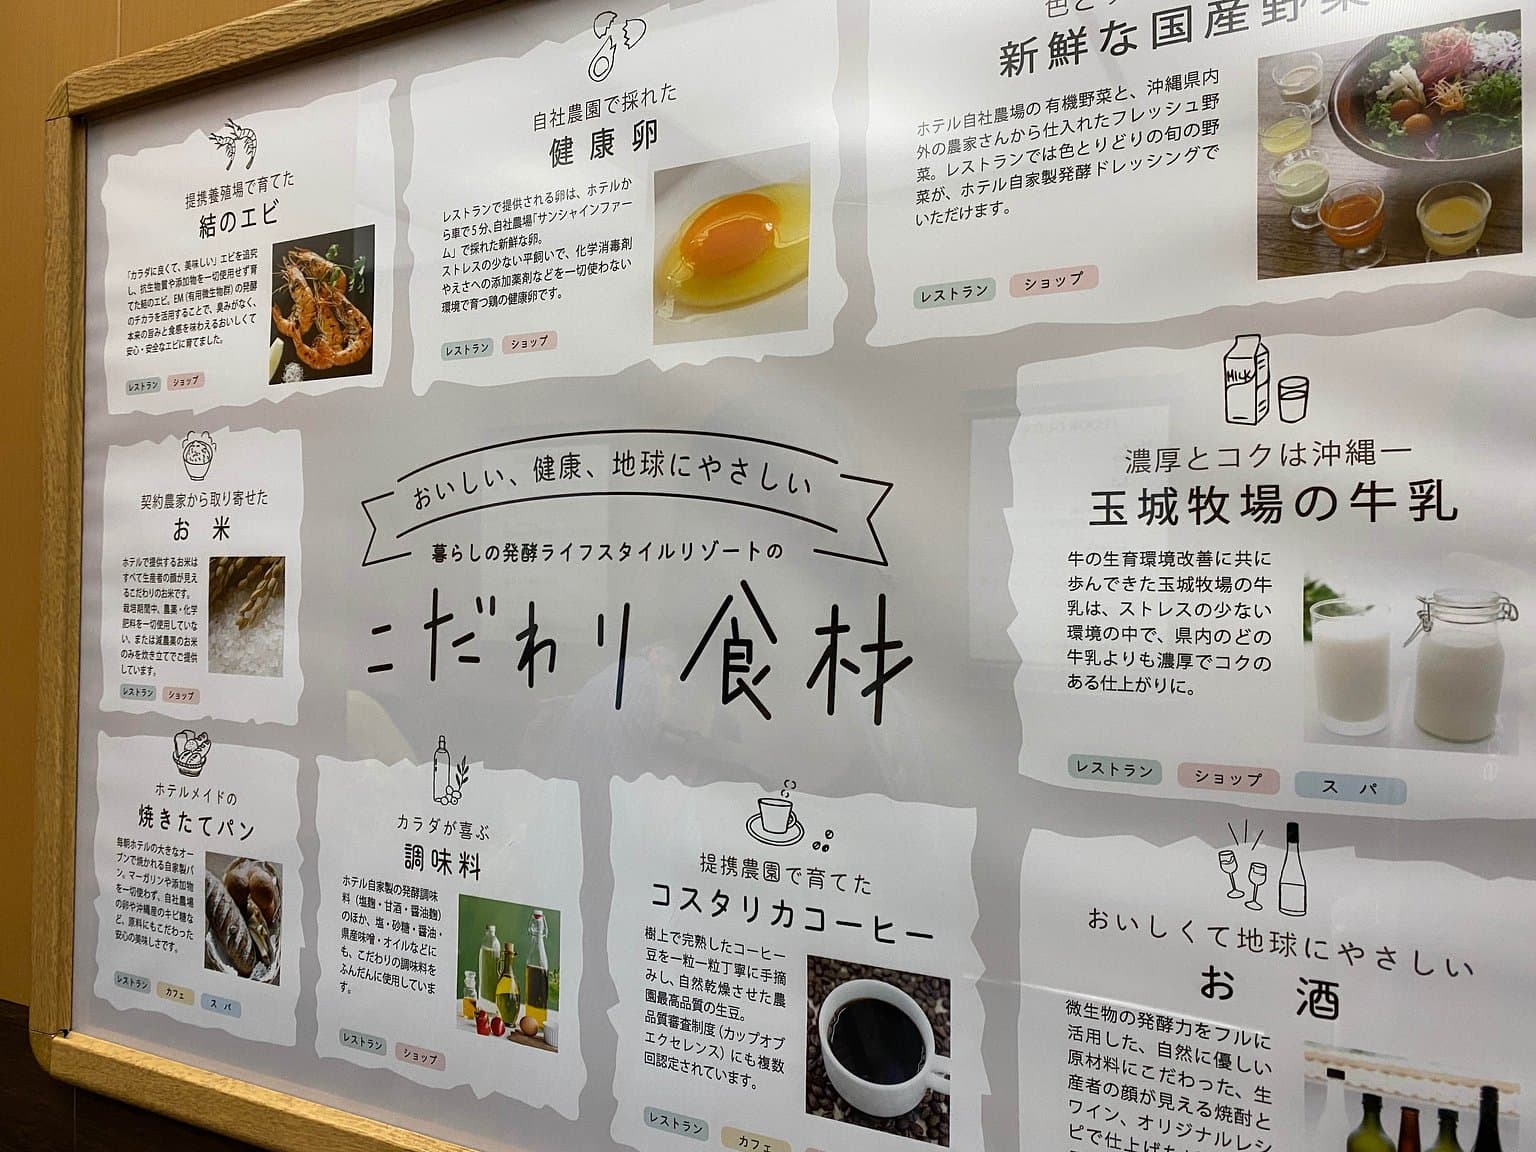 提携養殖場で育てた
結のエビ
「カラダに良くて、美味しい」エビを追究
し、抗生物質や添加物を一切使用せず育
てた結のエビ。EM（有用微生物群）の発酵
のチカラを活用することで、臭みがなく、
本来の旨みと食感を味わえるおいしくて
安心・安全なエビに育てました。
レストラン ショップ
自社農園で採れた
健康卵
レストランで提供される卵は、ホテルか
ら車で5分、自社農場「サンシャインファー
ム」で採れた新鮮な卵。
ストレスの少ない平飼いで、化学消毒剤
やえさへの添加薬剤などを一切使わない
環境で育つ鶏の健康卵です。
レストラン ショップ
新鮮な国産野菜
ホテル自社農場の有機野菜と、沖縄県内
外の農家さんから仕入れたフレッシュ野
菜。レストランでは色とりどりの旬の野
菜が、ホテル自家製発酵ドレッシングで
いただけます。
レストラン ショップ
おいしい、健康、地球にやさしい
暮らしの発酵ライフスタイルリゾートの
こだわり食材
契約農家から取り寄せた
お米
ホテルで提供するお米は
すべて生産者の顔が見え
るこだわりのお米です。
栽培期間中、農薬・化学
肥料を一切使用していな
い、または減農薬のお米
のみを炊き立てでご提供
しています。
レストラン ショップ
MILK
濃厚とコクは沖縄一
玉城牧場の牛乳
牛の生育環境改善に共に
歩んできた玉城牧場の牛
乳は、ストレスの少ない
環境の中で、県内のどの
牛乳よりも濃厚でコクの
ある仕上がりに。
レストラン ショップ スパ
ホテルメイドの
焼きたてパン
毎朝ホテルの大きなオー
ブンで焼かれる自家製パ
ン。マーガリンや添加物
を一切使わず、自社農場
の卵や沖縄産のキビ糖な
ど、原料にもこだわった
安心の美味しさです。
レストラン カフェ スパ
カラダが喜ぶ
調味料
ホテル自家製の発酵調味
料（塩麹・甘酒・醤油麹）
のほか、塩・砂糖・醤油・
県産味噌・オイルなどに
も、こだわりの調味料を
ふんだんに使用していま
す。
レストラン ショップ
提携農園で育てた
コスタリカコーヒー
樹上で完熟したコーヒー
豆を一粒一粒丁寧に手摘
みし、自然乾燥させた農
園最高品質の生豆。
品質審査制度（カップオブ
エクセレンス）にも複数
回認定されています。
レストラン カフェ
おいしくて地球にやさしい
お酒
微生物の発酵力をフルに
活用した、自然に優しい
原材料にこだわった、生
産者の顔が見える焼酎と
ワイン、オリジナルレシ
ピで仕上げた